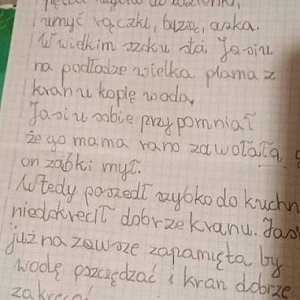 szybko do łazienki,
umyć rączki, buzia,
W wielkim szoku stał Jasiu
na podłodze wielka plama z
kranu kople woda,
Jasiu sobie przypomniał
że go mama rano zawołała
on ząbki mył.
Wtedy poszedł szybko do kuchn
niedokręcił dobrze kranu. Jaś
już na zawsze zapamięta by
wodę oszczędzać i kran dobrze
zakręcać